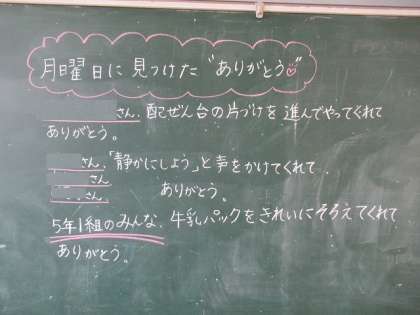 月曜日に見つけた"ありがとう"
さん、配ぜん台の片づけを進んでやってくれて
ありがとう。
さん、「静かにしよう」と声をかけてくれて
さん
さん、 ありがとう。
5年1組のみんな、牛乳パックをきれいにそろえてくれて
ありがとう。